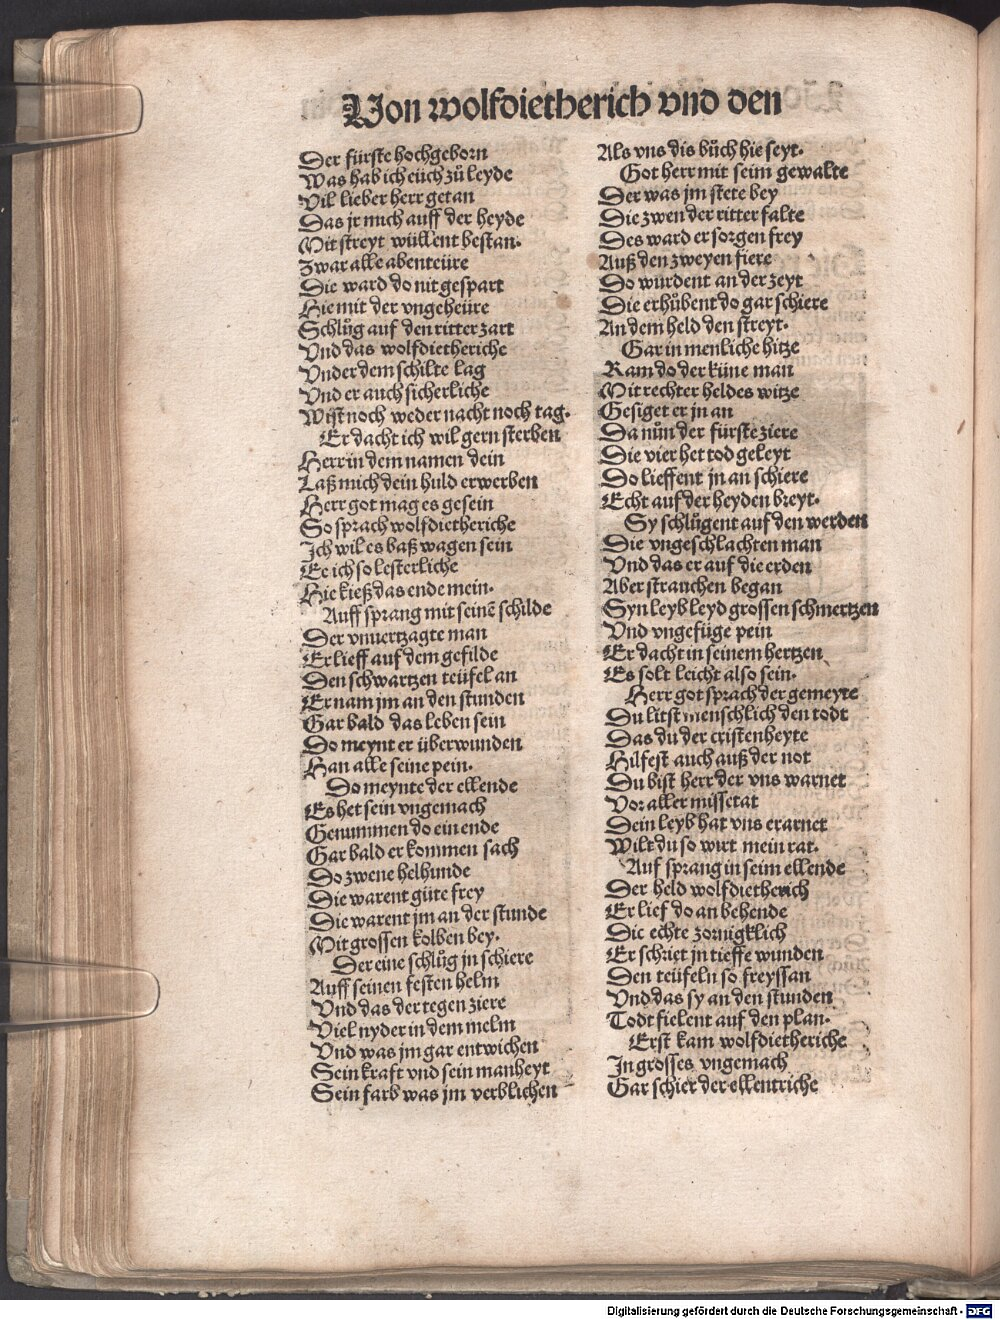 Von wolfdietherich vnd den
Der fürste hochgeborn
Was hab ich eüch zů leyde
Vil lieber herr getan
Das jr mich auff der heyde
Mit streyt wüllent bestan.
Zwar alle abenteüre
Die ward do nit gespart
Hie mit der vngeheüre
Schlůg auf den ritter zart
Vnd das wolfdietheriche
Vnder dem schilte lag
Vnd er auch sicherliche
Wist noch weder nacht noch tag.
Er dacht ich wil gern sterben
Herr in dem namen dein
Laß mich dein huld erwerben
Herr got mag es gesein
So sprach wolfdietheriche
Ich wil es baß wagen sein
Ee ich so lesterliche
Hie kieß das ende mein.
Auff sprang mit seinē schilde
Der vnuertzagte man
Er lieff auf dem gefilde
Den schwartzen teüfel an
Er nam jm an den stunden
Gar bald das leben sein
Do meynt er überwunden
Han alle seine pein.
Do meynte der ellende
Es het sein vngemach
Genummen do ein ende
Gar bald er kommen sach
Do zwene helhunde
Die warent güte frey
Die warent jm an der stunde
Mit grossen kolben bey.
Der eine schlůg jn schiere
Auff seinen festen helm
Vnd das der tegen ziere
Viel nyder in dem melm
Vnd was jm gar entwichen
Sein kraft vnd sein manheyt
Sein farb was jm verblichen
Als vns dis bůch hie seyt.
Got herr mit seim gewalte
Der was jm stete bey
Die zwen der ritter falte
Des ward er sorgen frey
Auß den zweyen fiere
Do wurdent an der zeyt
Die erhůbent do gar schiere
An dem held den streyt.
Gar in menliche hitze
Kam do der küne man
Mit rechter heldes witze
Gesiget er jn an
Da nůn der fürste ziere
Die vier het tod geleyt
Do lieffent jn an schiere
Echt auf der heyden breyt.
Sy schlůgent auf den werden
Die vngeschlachten man
Vnd das er auf die erden
Aber strauchen began
Syn leyb leyd grossen schmertzen
Vnd vngefüge pein
Er dacht in seinem hertzen
Es solt leicht also sein.
Herr got sprach der gemeyte
Du litst menschlich den todt
Das du der cristenheyte
Hilfest auch auß der not
Du bist herr der vns warnet
Vor aller missetat
Dein leyb hat vns erarnet
Wilt du so wirt mein rat.
Auf sprang in seim ellende
Der held wolfdietherich
Er lief do an behende
Die echte zornigklich
Er schriet jn tieffe wunden
Den teüfeln so freyssan
Vnd das sy an den stunden
Todt fielent auf den plan.
Erst kam wolfdietheriche
In grosses vngemach
Gar schier der ellentriche
Digitalisierung gefördert durch die Deutsche Forschungsgemeinschaft - DFG